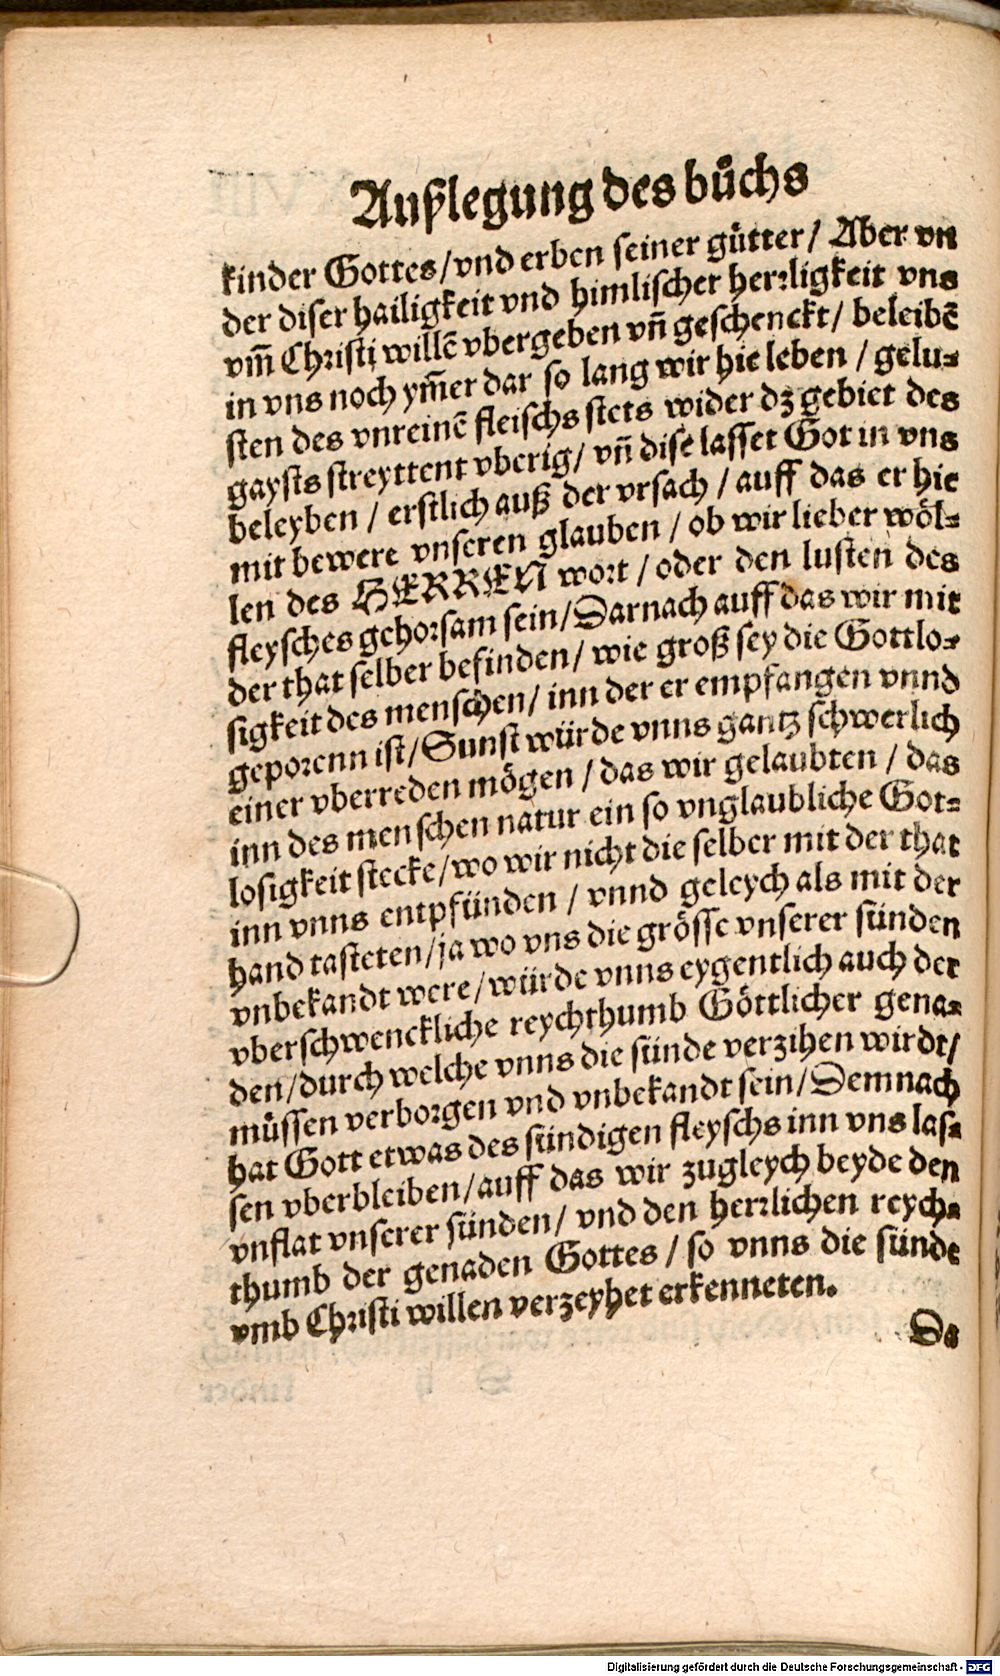 Außlegung des bůchs
kinder Gottes/vnd erben seiner gütter/ Aber vn
der diser hailigkeit vnd himlischer herrligkeit vns
vm̃ Christi willẽ vbergeben vñ geschenckt/ beleibẽ
in vns noch ym̃er dar so lang wir hie leben / gelu-
sten des vnreinẽ fleischs stets wider dz gebiet des
gaysts streyttent vberig/ vñ dise lasset Got in vns
beleyben / erstlich auß der vrsach / auff das er hie
mit bewere vnseren glauben / ob wir lieber wöl-
len des HERREN wort / oder den lusten des
fleysches gehorsam sein/Darnach auff das wir mit
der that selber befinden/ wie groß sey die Gottlo-
sigkeit des menschen/ inn der er empfangen vnnd
geporenn ist/Sunst würde vnns gantz schwerlich
einer vberreden mögen / das wir gelaubten / das
inn des menschen natur ein so vnglaubliche Got-
losigkeit stecke/wo wir nicht die selber mit der that
inn vnns entpfünden / vnnd geleych als mit der
hand tasteten/ja wo vns die grösse vnserer sünden
vnbekandt were/würde vnns eygentlich auch der
vberschwenckliche reychthumb Göttlicher gena-
den/durch welche vnns die sünde verzihen wirdt/
müssen verborgen vnd vnbekandt sein/Demnach
hat Gott etwas des sündigen fleyschs inn vns las-
sen vberbleiben/auff das wir zugleych beyde den
vnflat vnserer sünden/ vnd den herrlichen reych-
thumb der genaden Gottes / so vnns die sünde
vmb Christi willen verzeyhet erkenneten.
Da
Digitalisierung gefördert durch die Deutsche Forschungsgemeinschaft - DFG